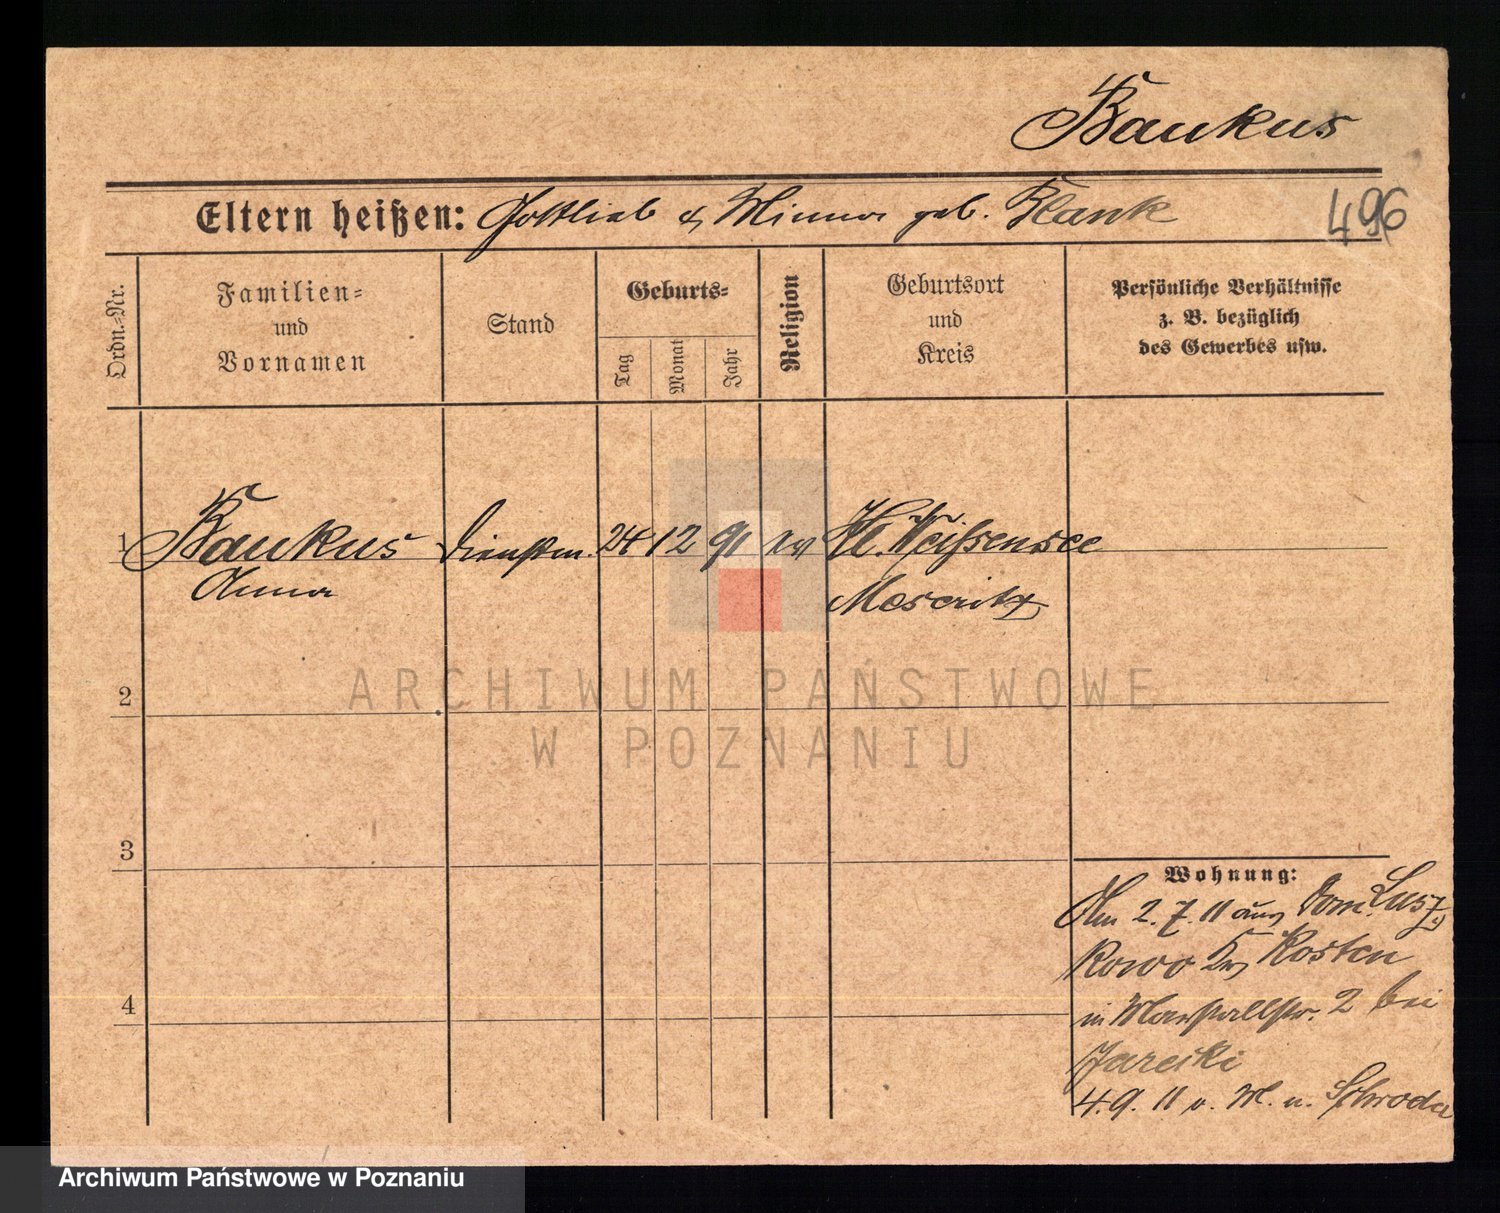 Baukus
Eltern heißen: Gottlieb & Minna geb. Blank
496
Ordn.-Nr.
Familien-
und
Vornamen
Stand
Geburts-
Tag
Monat
Jahr
Religion
Geburtsort
und
Kreis
Persönliche Verhältnisse
z. B. bezüglich
des Gewerbes usw.
1 Baukus Dienstm. 24 12 91 ev Kl. Weissensee
Anna Meseritz
2
3
4
Wohnung:
Am 2. 7. 11 aus Dom. Lusz
kowo Krs Kosten
in Marstallstr. 2 bei
Jarecki
4. 9. 11 n. Schroda
ARCHIWUM PAŃSTWOWE
W POZNANIU
Archiwum Państwowe w Poznaniu